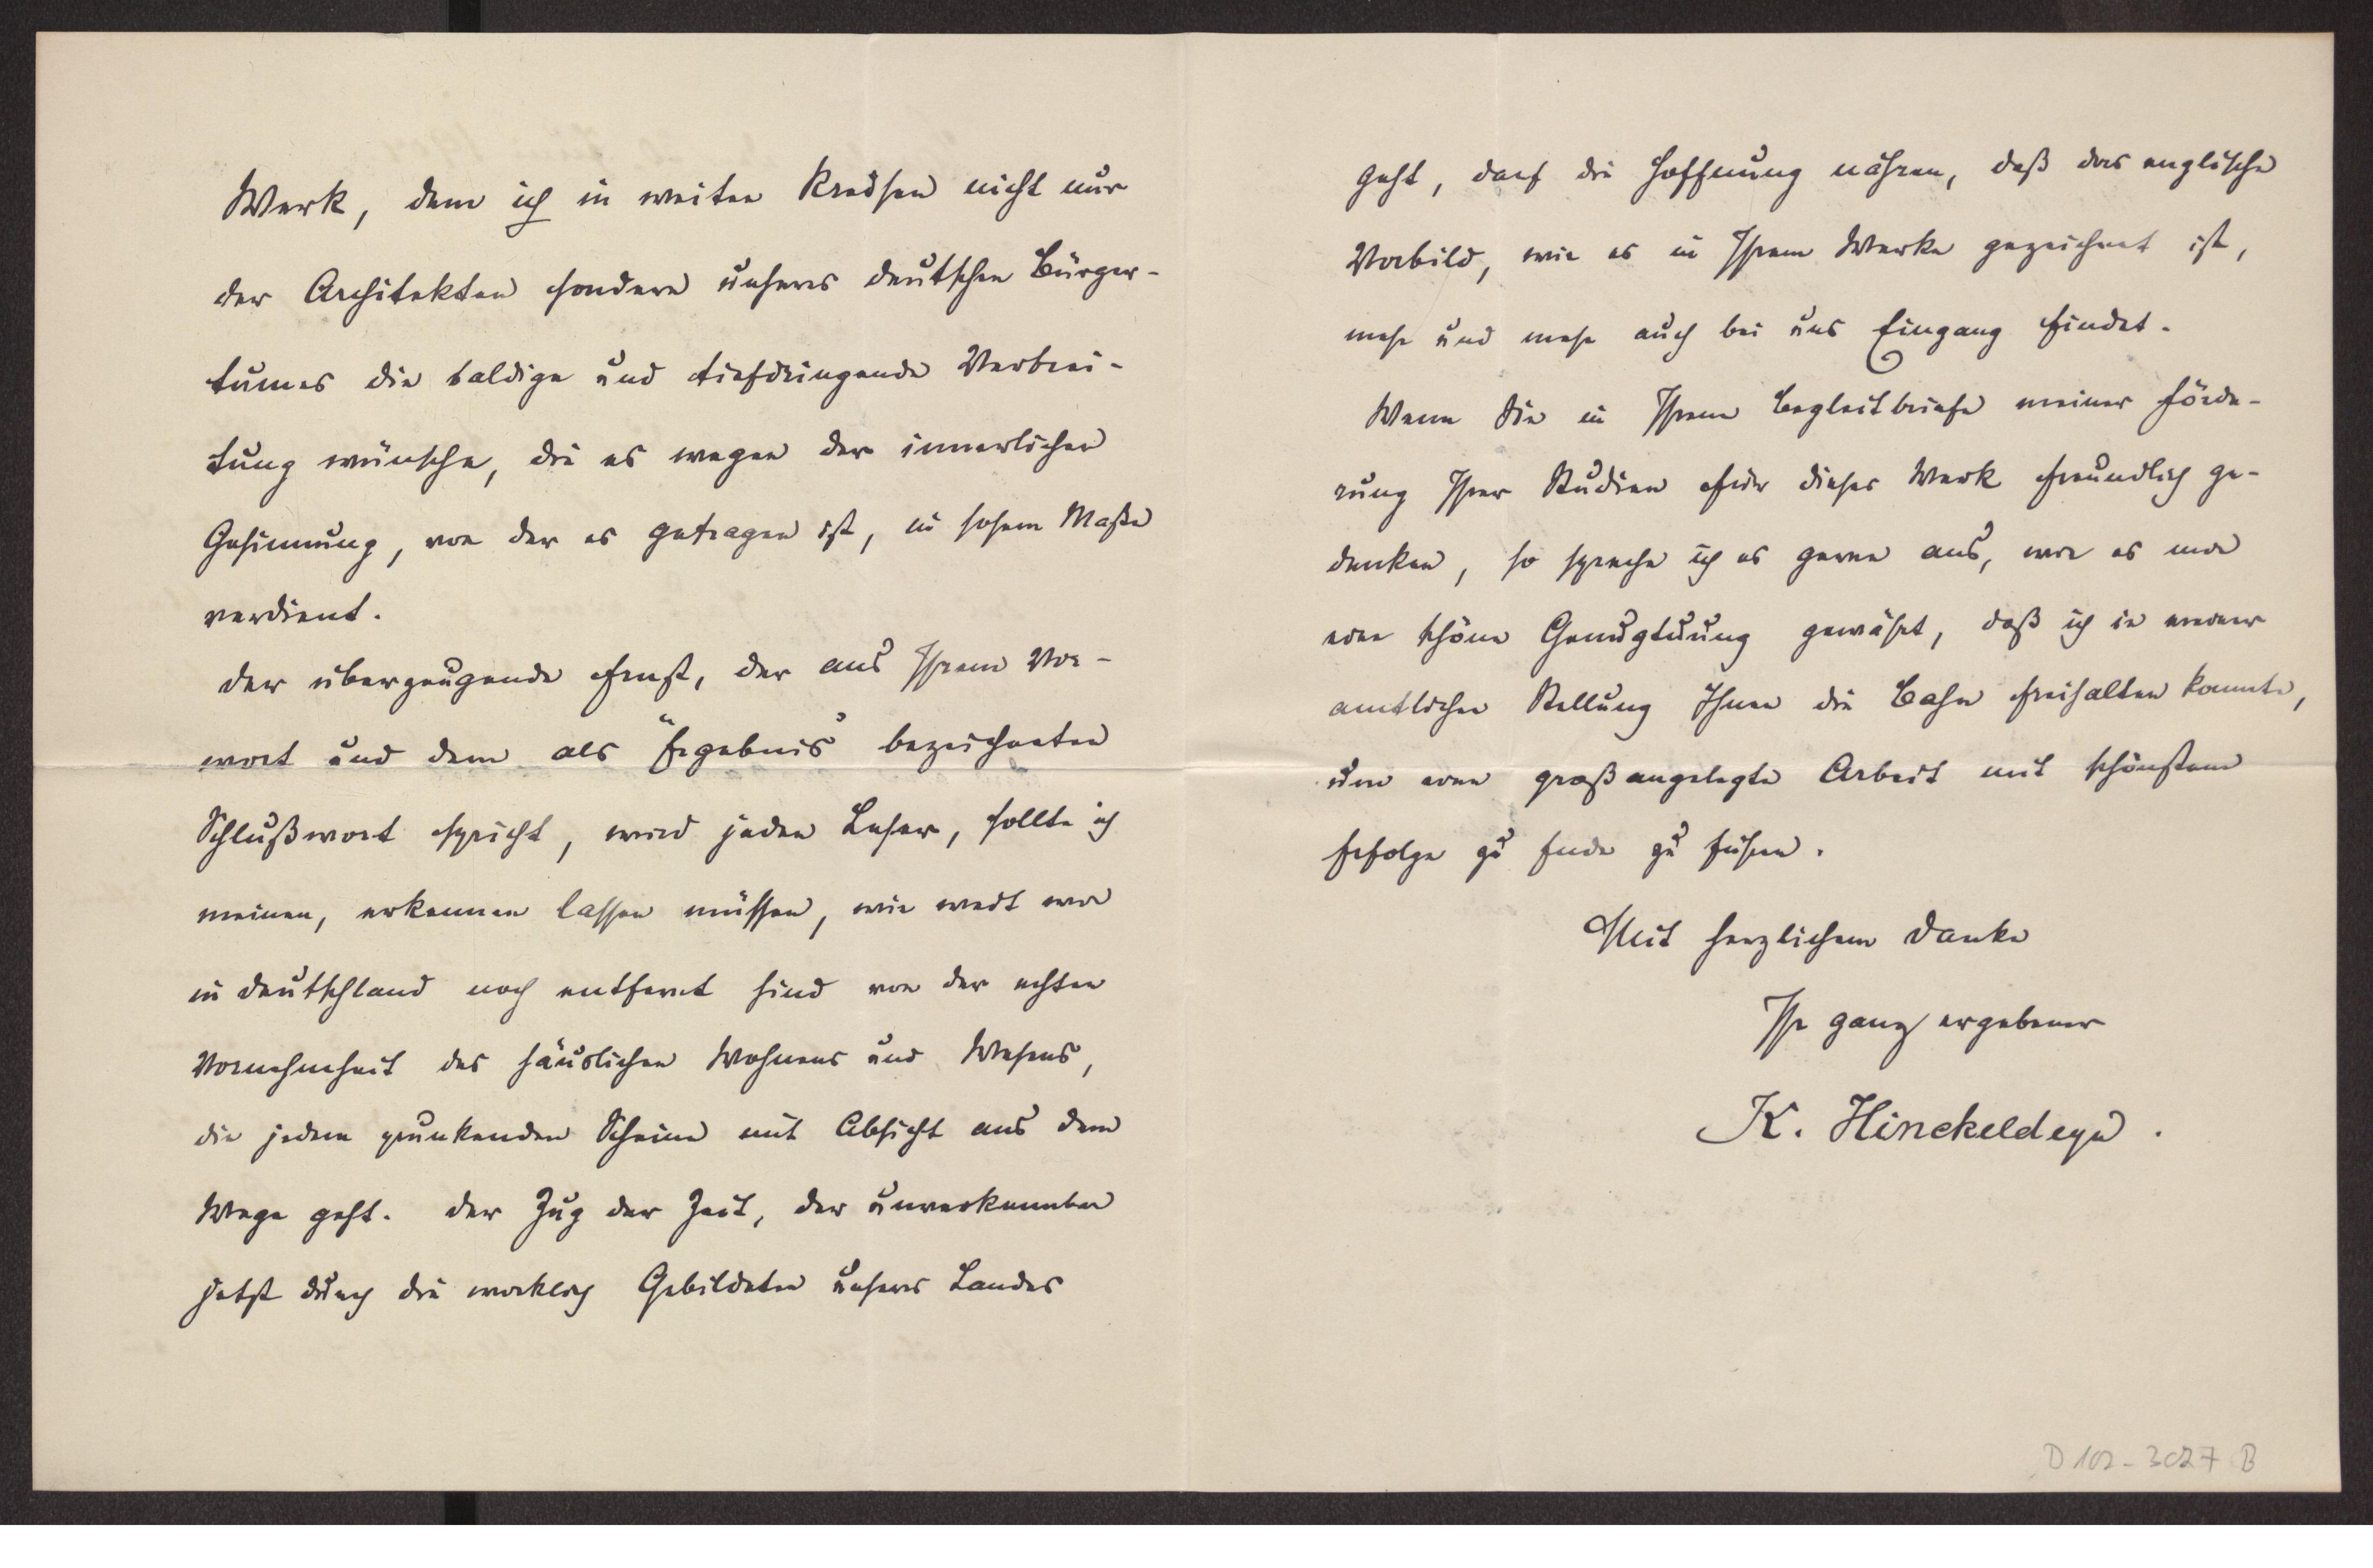 Werk, dem ich in weiten Kreisen nicht nur
der Architekten sondern unseres deutschen Bürger-
tumes die baldige und tiefdringende Verbrei-
tung wünsche, die es wegen der innerlichen
Gesinnung, von der es getragen ist, in hohem Maße
verdient.
Der überzeugende Ernst, der aus Ihrem Vor-
wort und dem als "Ergebnis" bezeichneten
Schlußwort spricht, wird jeden Leser, sollte ich
meinen, erkennen lassen müssen, wie weit wir
in Deutschland noch entfernt sind von der echten
Vornehmheit des häuslichen Wohnens und Wesens,
die jedem prunkenden Scheine mit Absicht aus dem
Wege geht. Der Zug der Zeit, der unverkennbar
jetzt durch die wirklich Gebildeten unseres Landes
geht, darf die Hoffnung nähren, daß das englische
Vorbild, wie es in Ihrem Werke gezeichnet ist,
mehr und mehr auch bei uns Eingang findet.
Wenn Sie in Ihrem Begleitbriefe meiner Förde-
rung Ihrer Studien für dieses Werk freundlich ge-
denken, so spreche ich es gerne aus, wie es mir
eine schöne Genugtuung gewährt, daß ich in meiner
amtlichen Stellung Ihnen die Bahn freihalten konnte,
um eine großangelegte Arbeit mit schönstem
Erfolge zu Ende zu führen.
Mit herzlichem Danke
Ihr ganz ergebener
K. Hinckeldeyn.
D 102-3027 B